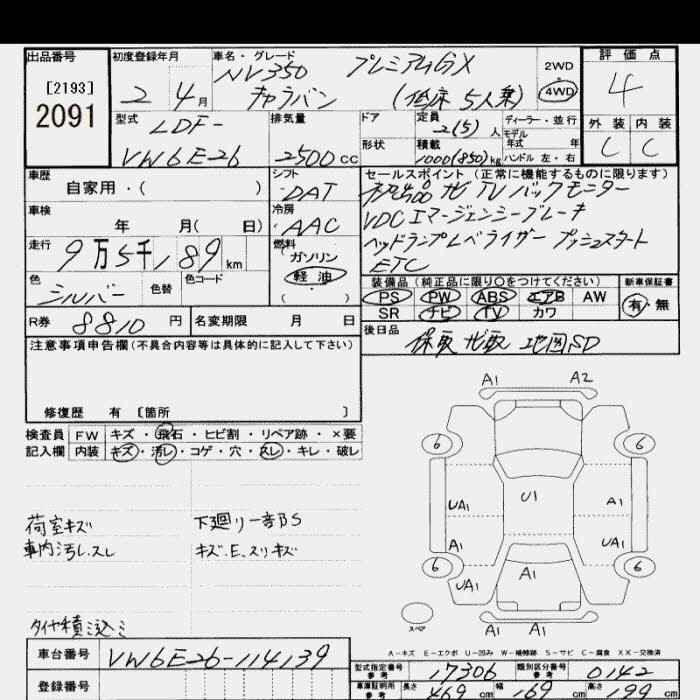 出品番号 初度登録年月 車名・グレード 評価点
[2193] NV350 プレミアムGX 2WD
2091 2 4月 キャラバン (低床 5人乗) 4WD 4
型式 排気量 ドア 定員 2(5)人 ディーラー・並行 外装 内装
LDF- モデル年式 年
VW6E26 2500cc 形状 積載 1000(850)kg ハンドル 左・右 C C
車歴 シフト セールスポイント(正常に機能するものに限ります)
自家用・( ) DAT 地 TV バックモニター
車検 冷房 VDC エマージェンシーブレーキ
年 月( 日) AAC ヘッドランプレベライザー プッシュスタート
走行 9万5千,189km 燃料 ETC
ガソリン
色 色替 色コード 軽油・ 装備品(純正品に限り○をつけてください) 新車保証書
シルバー ( ) PS PW ABS エアB AW 有・無
SR ナビ TV カワ
R券 8810円 名変期限 月 日 後日品
注意事項申告欄(不具合内容等は具体的に記入して下さい) 保取 地取 地図SD
修復歴 有 〔箇所 〕
A1 A2
検査員 FW キズ・飛石・ヒビ割・リペア跡・×要
記入欄 内装 キズ・汚レ・コゲ・穴・スレ・キレ・破レ
6 6
UA1 U1 A1
荷室キズ 下廻り一部S
車内汚レ.スレ キズ.E.スリキズ
A1 UA1
6 6
UA1 A1
スペア
タイヤ積ミ込ミ
A1 A1
A-キズ E-エクボ U-凹み W-補修跡 S-サビ C-腐食 XX-交換済
車台番号 VW6E26-114139
型式指定番号 参考 17306 類別区分番号 参考 0142
登録番号
車庫証明用 参考 長さ 469cm 幅 169cm 高さ 199cm